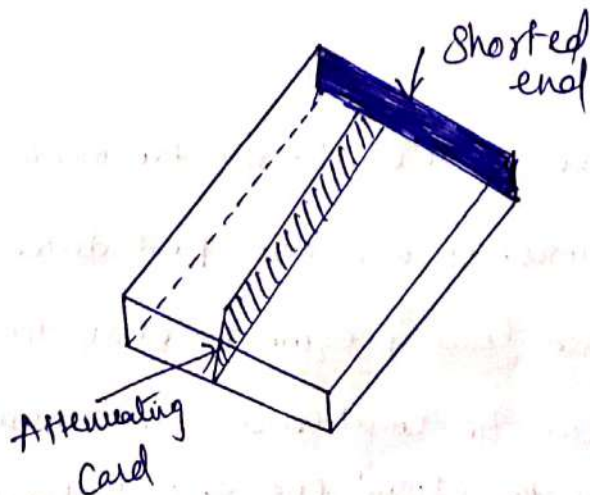 Shorted
end
Attenuating
Card